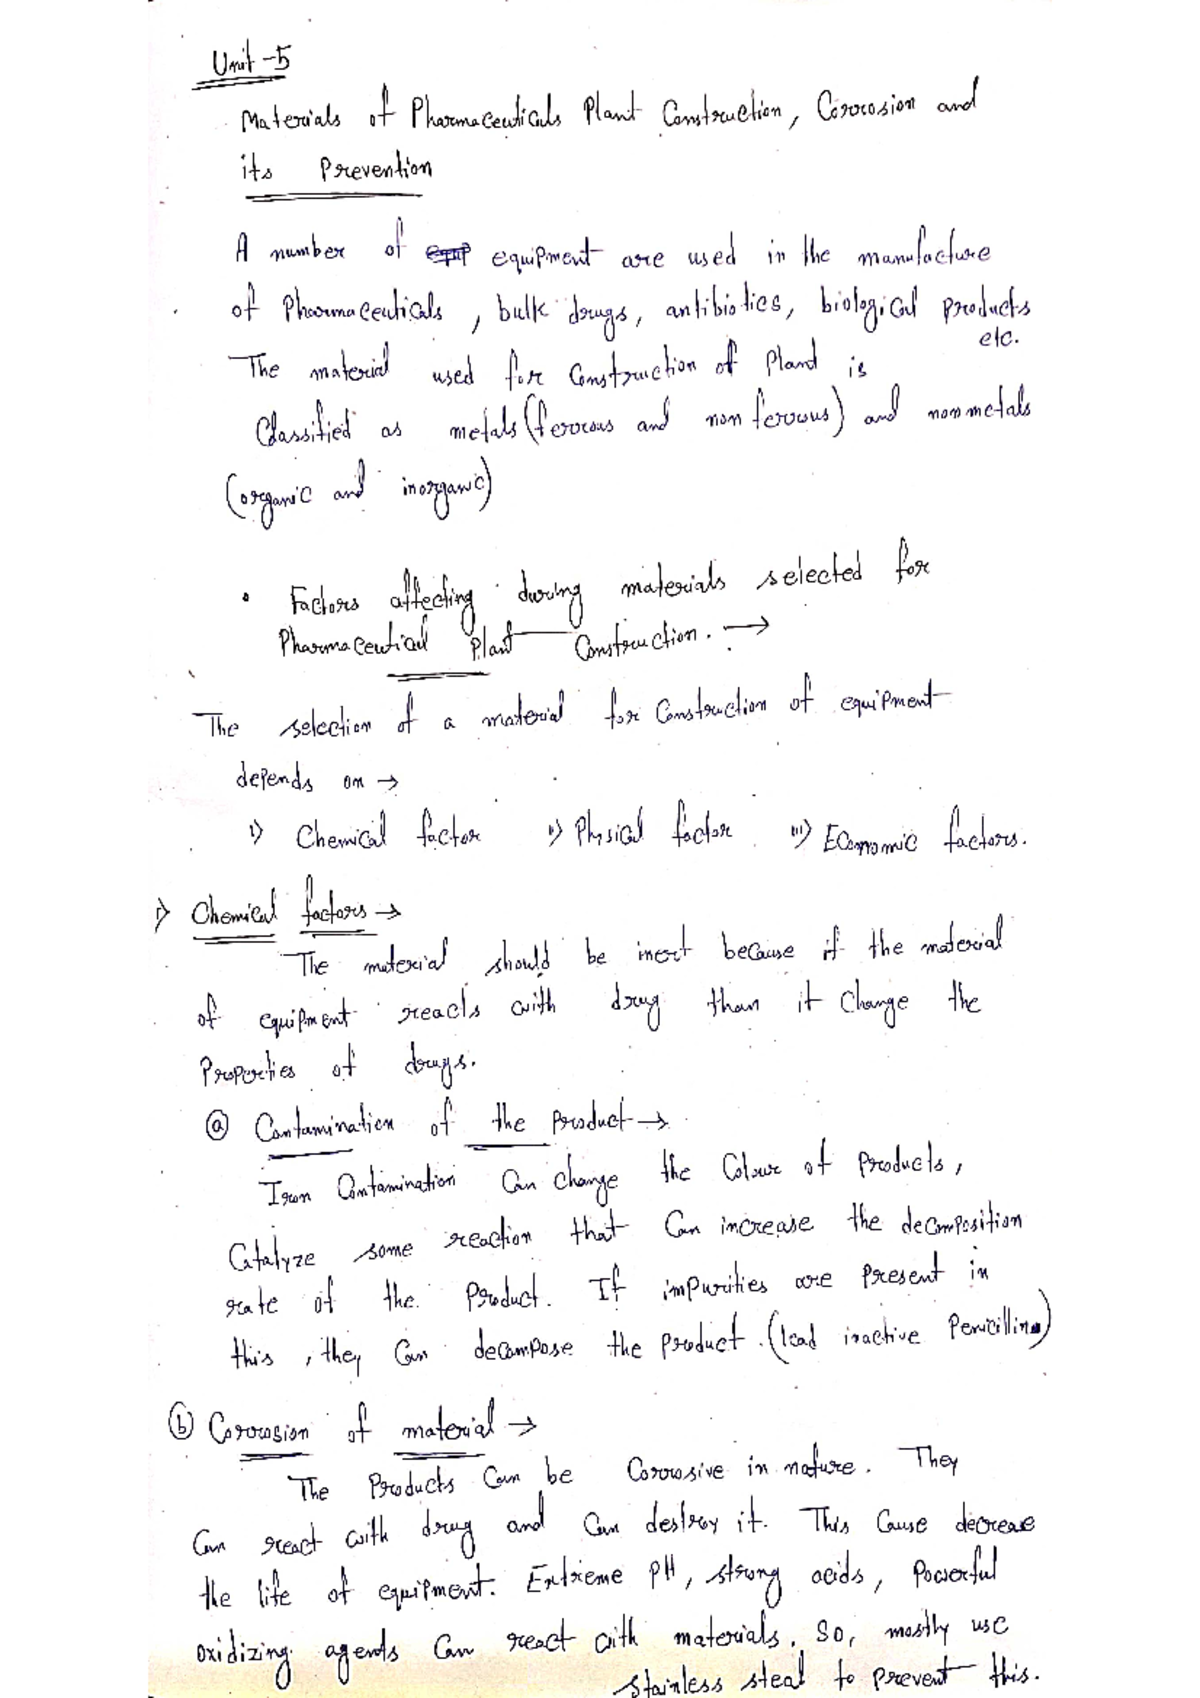 Unit-5
Materials of Pharmaceuticals Plant Construction, Corrosion and
its Prevention
A number of equipment are used in the manufacture
of Pharmaceuticals, bulk drugs, antibiotics, biological products
etc.
The material used for Construction of Pland is
Classified as metals (ferrous and non ferrous) and non metals
(organic and inorganic)
• Factors affecting during materials selected for
Pharmaceutical Plant Construction. →
The selection of a material for Construction of equipment
depends on →
i) Chemical factor ii) Physical factor iii) Economic factors.
i) Chemical factors →
The material should be inert because if the material
of equipment reacts with drug than it Change the
Properties of drugs.
(a) Contamination of the Product →
Iron Contamination Can change the Colour of Products,
Catalyze some reaction that Can increase the decomposition
rate of the Product. If impurities are Present in
this, they Can decompose the product. (lead inactive Penicillin)
(b) Corrosion of material →
The Products Can be Corrosive in nature. They
Can react with drug and Can destroy it. This Cause decrease
the life of equipment. Extreme PH, strong acids, Powerful
oxidizing agents Can react with materials. So, mostly use
stainless steal to prevent this.